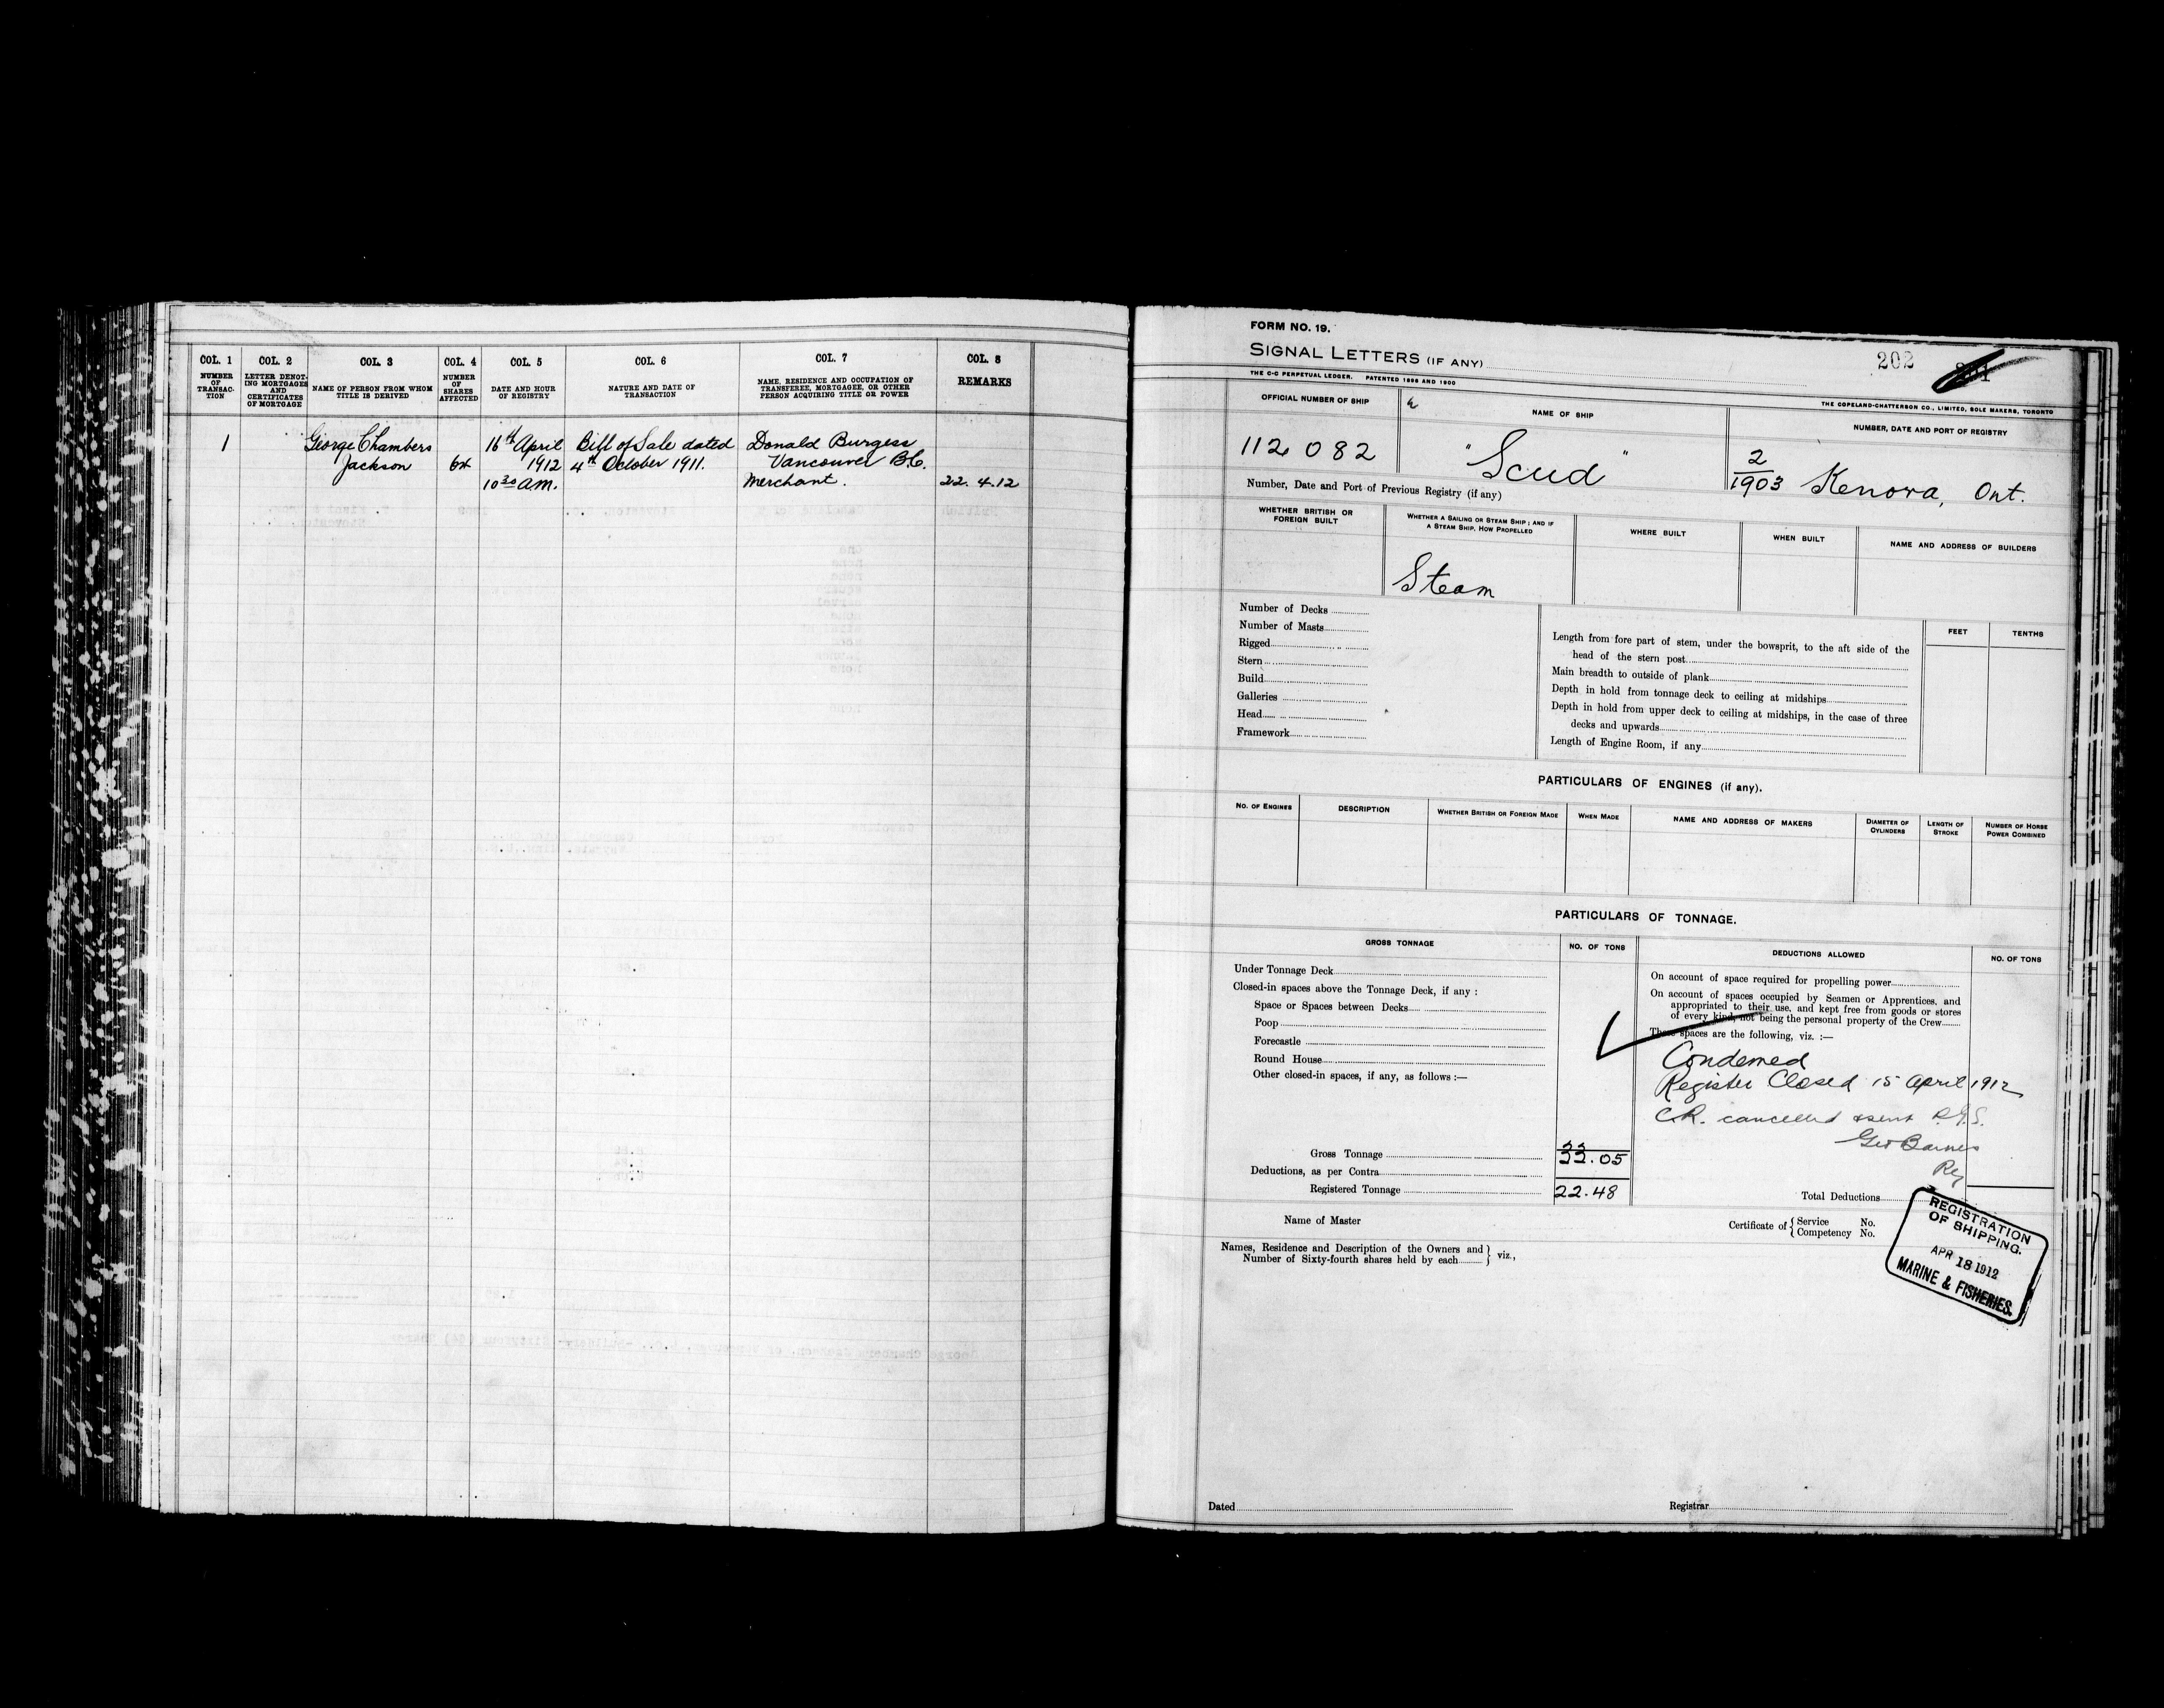 COL. 1
NUMBER OF TRANSAC- TION
COL. 2
LETTER DENOT- ING MORTGAGES AND CERTIFICATES OF MORTGAGE
COL. 3
NAME OF PERSON FROM WHOM TITLE IS DERIVED
COL. 4
NUMBER OF SHARES AFFECTED
COL. 5
DATE AND HOUR OF REGISTRY
COL. 6
NATURE AND DATE OF TRANSACTION
COL. 7
NAME, RESIDENCE AND OCCUPATION OF TRANSFEREE, MORTGAGEE, OR OTHER PERSON ACQUIRING TITLE OR POWER
COL. 8
REMARKS
1 George Chambers 16th April Bill of Sale dated Donald Burgess
Jackson 64 1912 4th October 1911. Vancouver B.C.
10 30 A.M. Merchant. 22. 4. 12
FORM NO. 19.
SIGNAL LETTERS (IF ANY)
202
THE C-C PERPETUAL LEDGER. PATENTED 1898 AND 1900
THE COPELAND-CHATTERSON CO., LIMITED, SOLE MAKERS, TORONTO
OFFICIAL NUMBER OF SHIP
112 082
NAME OF SHIP
"Scud"
NUMBER, DATE AND PORT OF REGISTRY
2
1903 Kenora, Ont.
Number, Date and Port of Previous Registry (if any)
WHETHER BRITISH OR FOREIGN BUILT
WHETHER A SAILING OR STEAM SHIP; AND IF A STEAM SHIP, HOW PROPELLED
WHERE BUILT
WHEN BUILT
NAME AND ADDRESS OF BUILDERS
Steam
Number of Decks
Number of Masts
Rigged
Stern
Build
Galleries
Head
Framework
FEET
TENTHS
Length from fore part of stem, under the bowsprit, to the aft side of the
head of the stern post
Main breadth to outside of plank
Depth in hold from tonnage deck to ceiling at midships
Depth in hold from upper deck to ceiling at midships, in the case of three
decks and upwards
Length of Engine Room, if any
PARTICULARS OF ENGINES (if any).
NO. OF ENGINES
DESCRIPTION
WHETHER BRITISH OR FOREIGN MADE
WHEN MADE
NAME AND ADDRESS OF MAKERS
DIAMETER OF CYLINDERS
LENGTH OF STROKE
NUMBER OF HORSE POWER COMBINED
PARTICULARS OF TONNAGE.
GROSS TONNAGE
NO. OF TONS
DEDUCTIONS ALLOWED
NO. OF TONS
Under Tonnage Deck
Closed-in spaces above the Tonnage Deck, if any :
Space or Spaces between Decks
Poop
Forecastle
Round House
Other closed-in spaces, if any, as follows :—
Gross Tonnage 33.05
Deductions, as per Contra
Registered Tonnage 22.48
On account of space required for propelling power
On account of spaces occupied by Seamen or Apprentices, and
appropriated to their use, and kept free from goods or stores
of every kind, not being the personal property of the Crew
These spaces are the following, viz. :—
Condemed
Register Closed 15 April 1912
C.R. cancelled & sent R.G.S.
Geo Barnes
Reg
Total Deductions
Name of Master
Certificate of { Service No.
{ Competency No.
Names, Residence and Description of the Owners and } viz.,
Number of Sixty-fourth shares held by each
REGISTRATION
OF SHIPPING.
APR 18 1912
MARINE & FISHERIES.
Dated
Registrar